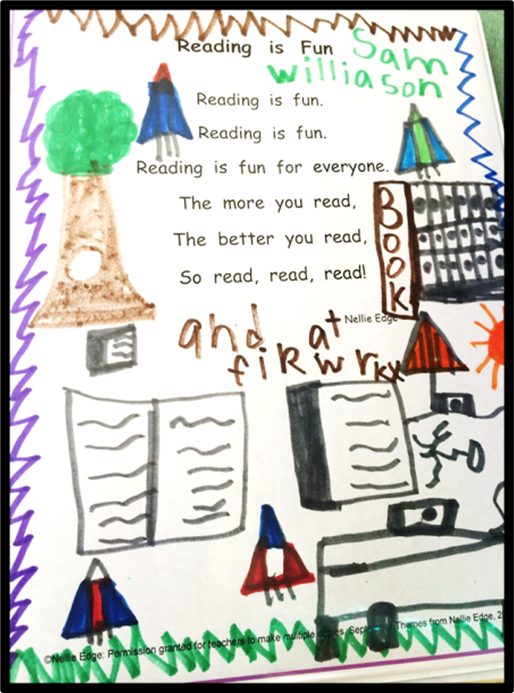 Reading is Fun
Sam
williason
Reading is fun.
Reading is fun.
Reading is fun for everyone.
The more you read,
The better you read,
So read, read, read!
BOOK
Nellie Edge
and at
fik wrkx
©Nellie Edge: Permission granted for teachers to make multiple Themes from Nellie Edge, 2